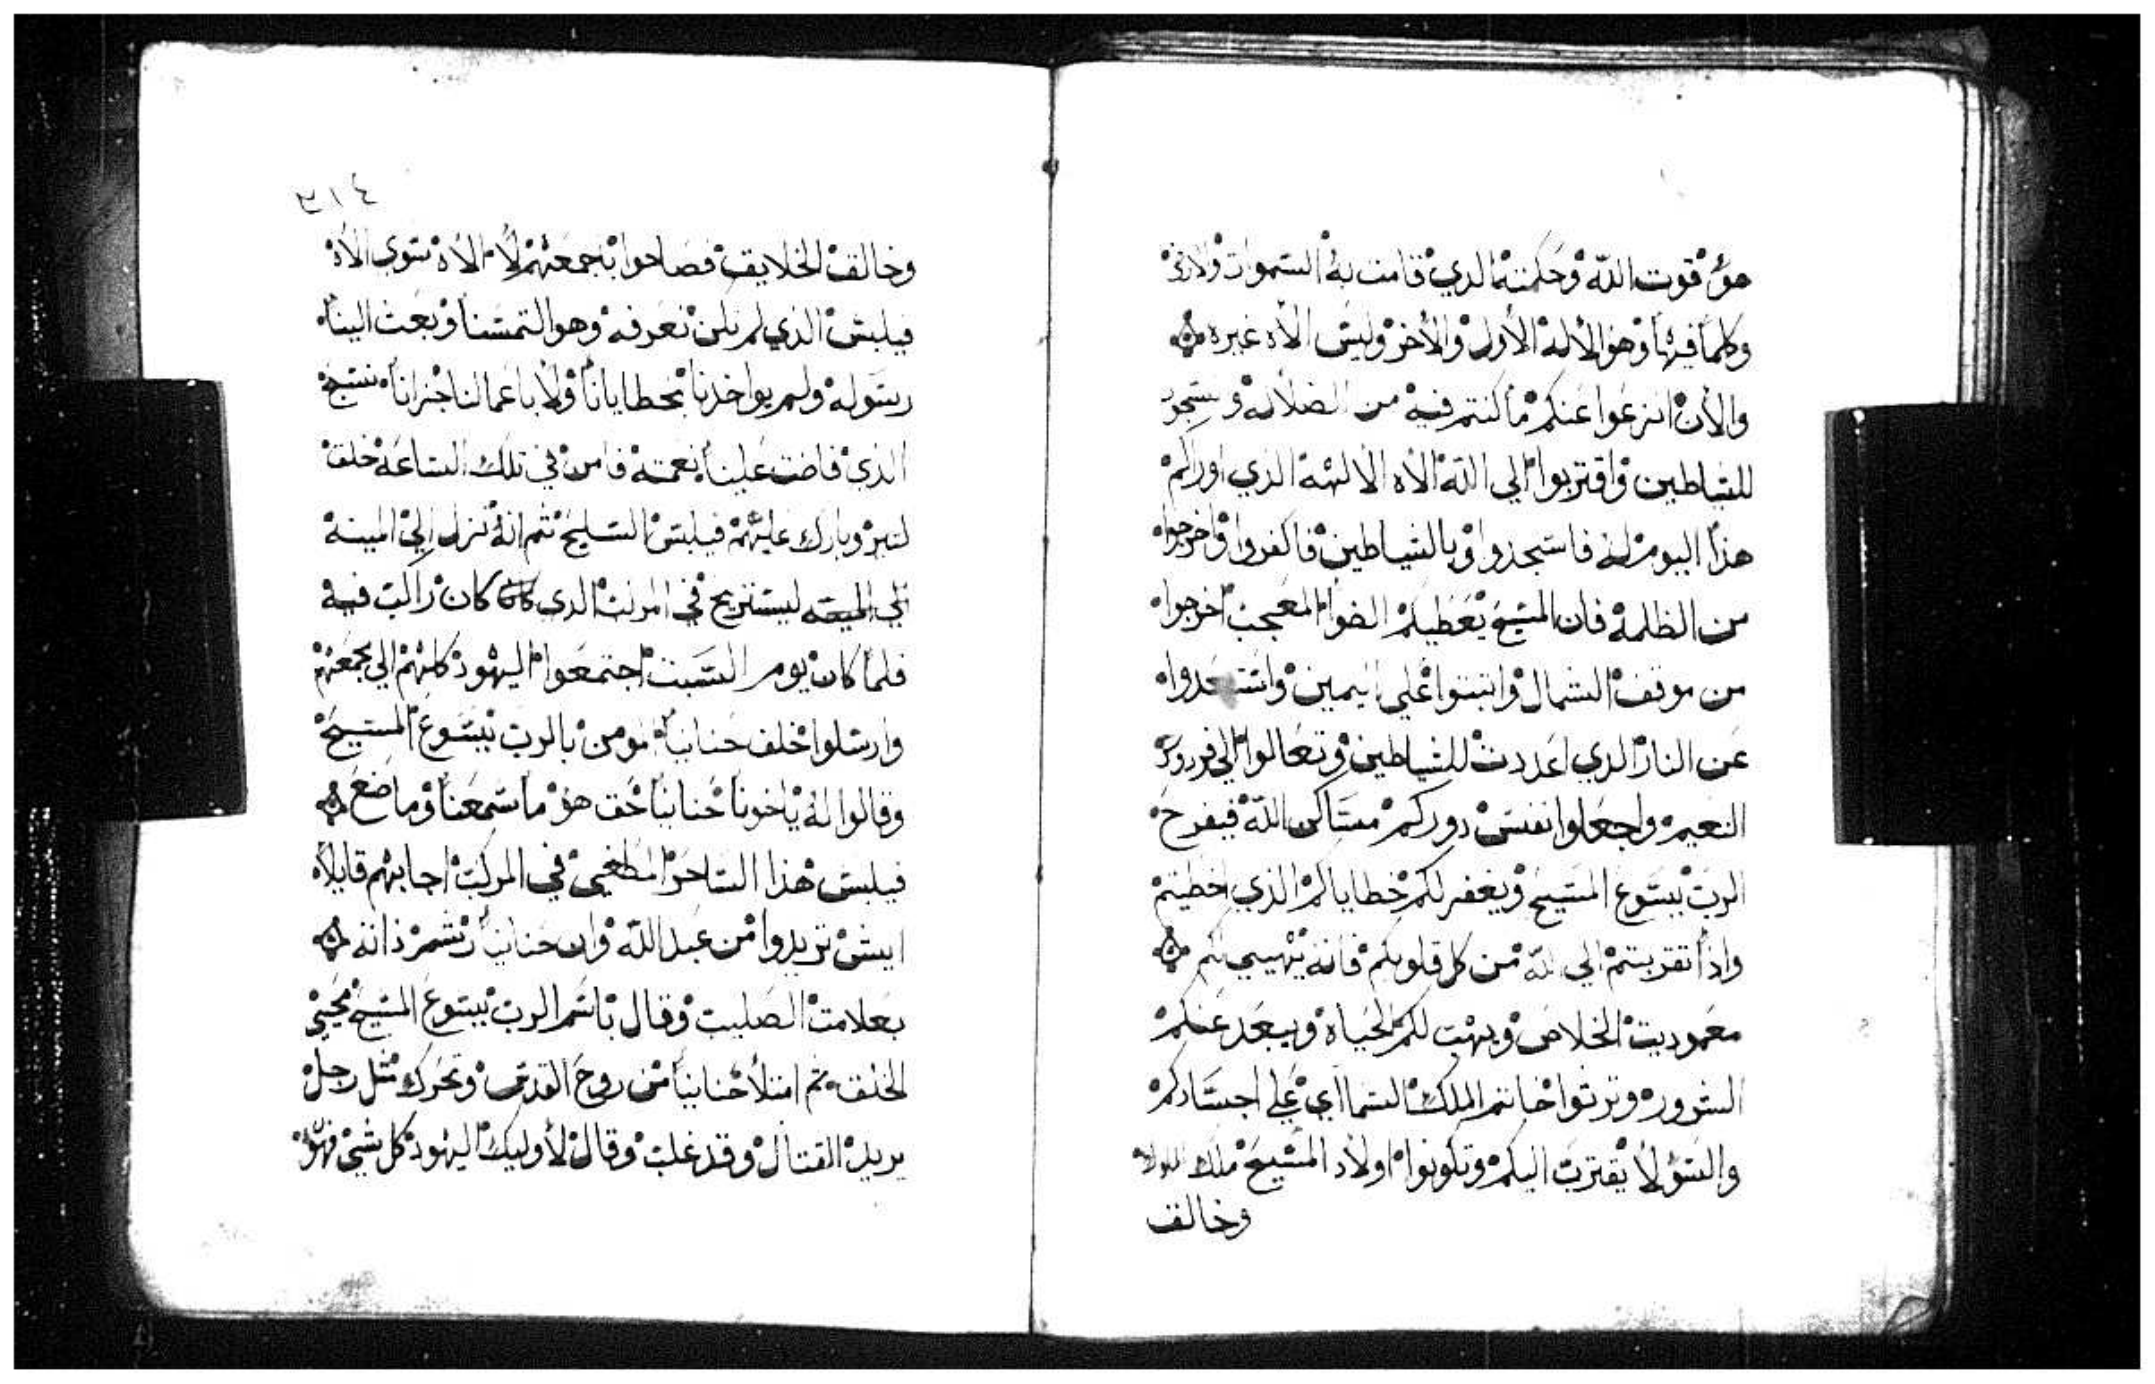 هو قوت الله وحكمته الدي قامت به السموات والارض
وكلما فيها وهو الاله الأول والأخر وليس الاه غيره
والأن انزعوا عنكم ما كنتم فيه من الضلاله وتسجدو
للشياطين واقتربوا الي الله الاه الالهه الذي اوراكم
هذا اليوم له فاسجدوا وبالشياطين فاكفروا واخرجوا
من الظلمة فان المسيح يعطيكم الضوا المعجب اخرجوا
من موقف الشمال واثبتوا علي اليمين وابتعدوا
عن النار الدي اعددت للشياطين وتعالوا الي فردوس
النعيم واجعلوا نفس دوركم مساكن الله فيفرح
الرب يسوع المسيح ويغفر لكم خطاياكم الذي اخطيتم
واذا تقربتم الي الله من كل قلوبكم فانه يهيي لكم
معموديت الخلاص ويهب لكم الحياه ويبعد عنكم
الشروره وترتوا خاتم الملك السماأي علي اجسادكم
والسؤ لا يقترب اليكم وتكونوا اولاد المسيح ملك الملوك
وخالف
٣١٤
وخالق الخلايق فصاحوا باجمعهم لا الاه سوي الاه
فيلبس الذي لم نكن نعرفه وهو التمسنا وبعث الينا
رسوله ولم يواخدنا بخطايانا ولا باعمالنا جزانا نسبح
الذي فاضت علينا نعمته فامن في تلك الساعه خلق
كتير وبارك عليهم فيلبس السليح تم انه نزل الي المينه
ليستريح في المركب الدي كان راكب فيه
فلما كان يوم السبت اجتمعوا اليهود كلهم الي مجمعهم
وارسلوا خلف حنانيا مومن بالرب يسوع المسيح
وقالوا له ياخونا حنانيا حق هو ما سمعنا وما صنع
فيلبس هذا الساحر المطغيي في المركب اجابهم قايلا
ايش تريدوا من عبد الله وان حنانيا رشم ذاته
بعلامت الصليب وقال باسم الرب يسوع المسيح محيي
الخلق تم امتلأ حنانيا من روح القدس وتحرك متل رجل
يريد القتال وقد غلب وقال لأوليك اليهود كل شي فهو